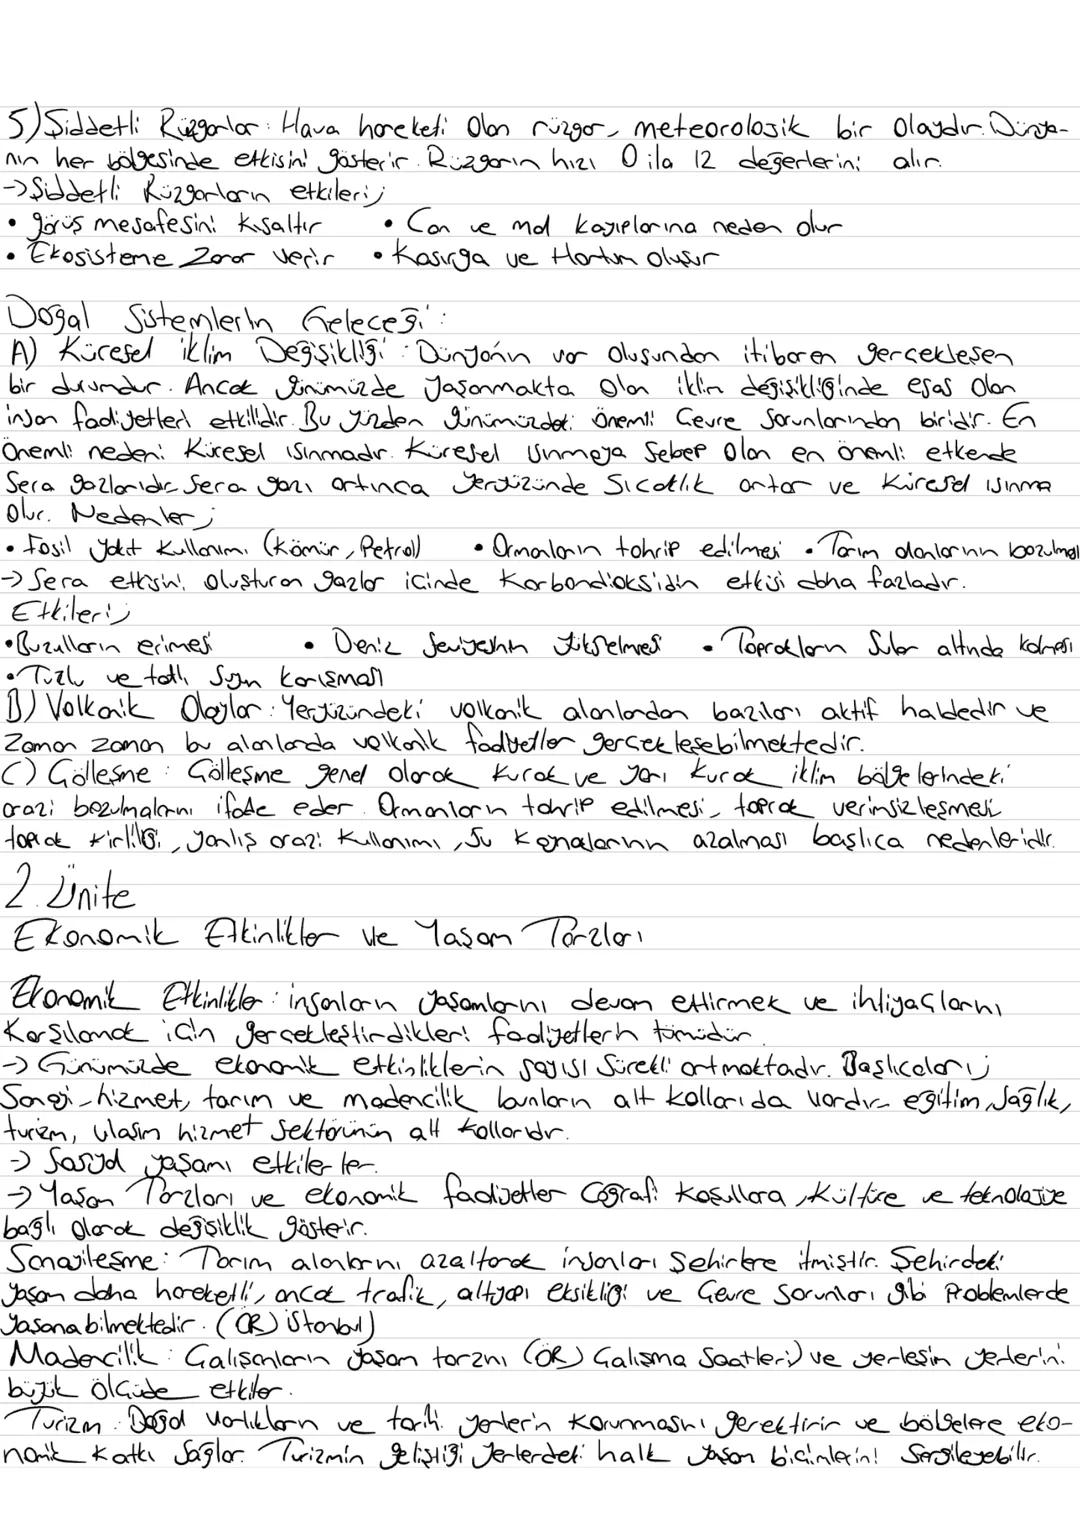 5) Şiddetli Rüzgarlar: Hava hareketi olan rüzgar, meteorolojik bir olaydır. Dünya-
nın her bölgesinde etkisini gösterir. Rüzgarın hızı 0 ila 12 değerlerini alır.
→ Şiddetli Rüzgarların etkileri;
• görüş mesafesini kısaltır • Can ve mal kayıplarına neden olur
• Ekosisteme Zarar verir • Kasırga ve Hortum oluşur
Doğal Sistemlerin Geleceği:
A) Küresel iklim Değişikliği: Dünyanın var oluşundan itibaren gerçekleşen
bir durumdur. Ancak günümüzde yaşanmakta olan iklim değişikliğinde esas olan
insan faaliyetleri etkilidir. Bu yüzden günümüzdeki önemli Çevre Sorunlarından biridir. En
önemli nedeni Küresel ısınmadır. Küresel ısınmaya Sebep olan en önemli etkende
Sera gazlarıdır. Sera gazı artınca Yeryüzünde Sıcaklık artar ve Küresel ısınma
olur. Nedenler;
• Fosil yakıt Kullanımı (Kömür, Petrol) • Ormanların tahrip edilmesi • Tarım alanlarının bozulması
→ Sera etkisini oluşturan gazlar içinde Karbondioksidin etkisi daha fazladır.
Etkileri;
• Buzulların erimesi • Deniz Seviyesinin Yükselmesi • Toprakların Sular altında kalması
• Tuzlu ve tatlı Suyun karışması
B) Volkanik Olaylar: Yeryüzündeki volkanik alanlardan bazıları aktif haldedir ve
Zaman zaman bu alanlarda volkanik faaliyetler gerçekleşebilmektedir.
C) Çölleşme: Çölleşme genel olarak Kurak ve yarı Kurak iklim bölgelerindeki
arazi bozulmalarını ifade eder. Ormanların tahrip edilmesi, toprak verimsizleşmesi
toprak kirliliği, yanlış arazi Kullanımı, Su Kaynaklarının azalması başlıca nedenleridir.
2. Ünite
Ekonomik Etkinlikler ve Yaşam Tarzları
Ekonomik Etkinlikler: insanların yaşamlarını devam ettirmek ve ihtiyaçlarını
Karşılamak için gerçekleştirdikleri faaliyetlerin tümüdür.
→ Günümüzde ekonomik etkinliklerin sayısı Sürekli artmaktadır. Başlıcaları;
Sanayi, hizmet, tarım ve madencilik bunların alt kolları da vardır. eğitim, Sağlık,
turizm, ulaşım hizmet Sektörünün alt Kollarıdır.
→ Sosyal yaşamı etkilerler.
→ Yaşam Tarzları ve ekonomik faaliyetler Coğrafi Koşullara, Kültüre ve teknolojiye
bağlı olarak değişiklik gösterir.
Sanayileşme: Tarım alanlarını azaltarak insanları Şehirlere itmiştir. Şehirdeki
yaşam daha hareketli, ancak trafik, altyapı eksikliği ve Çevre Sorunları gibi Problemlerde
Yaşanabilmektedir. (ÖR) İstanbul)
Madencilik: Çalışanların yaşam tarzını (ÖR) Çalışma Saatleri) ve yerleşim yerlerini
büyük ölçüde etkiler.
Turizm: Doğal Varlıkların ve tarihi yerlerin Korunmasını gerektirir ve bölgelere eko-
nomik Katkı Sağlar. Turizmin geliştiği Yerlerdeki halk yaşam biçimlerini Sergileyebilir.